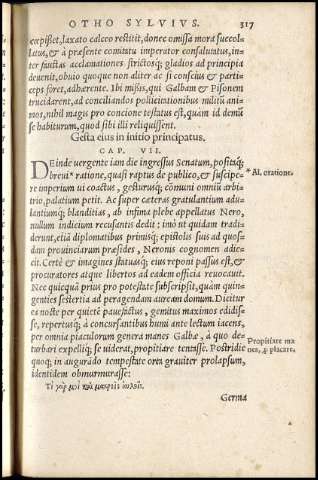 OTHO SYLVIUS. 317
excipisset, laxato calceo restitit, donec omissa mora succol-
latus, & à præsente comitatu imperator consalutatus, in-
ter faustas acclamationes strictosq; gladios ad principia
deuenit, obuio quoque non aliter ac si conscius & parti-
ceps foret, adhærente. Ibi missis, qui Galbam & Pisonem
trucidarent, ad conciliandos pollicitationibus militū ani-
mos, nihil magis pro concione testatus est, quàm id demū
se habiturum, quod sibi illi reliquissent.
Gesta eius in initio principatus.
CAP. VII.
DEinde uergente iam die ingressus Senatum, positaq;
breui* ratione, quasi raptus de publico, & suscipe-
* Al. oratione.
re imperium ui coactus, gesturusq; cōmuni omniū arbi-
trio, palatium petit. Ac super cæteras gratulantium adu-
lantiumq; blanditias, ab infima plebe appellatus Nero,
nullum indicium recusantis dedit: imò ut quidam tradi-
derunt, etiā diplomatibus primisq; epistolis suis ad quos-
dam prouinciarum præsides, Neronis cognomen adie-
cit. Certè & imagines statuasq; eius reponi passus est, &
procuratores atque libertos ad eadem officia reuocauit.
Nec quicquā prius pro potestate subscripsit, quàm quin-
genties sestertiū ad peragendam auream domum. Dicitur
ea nocte per quietē pauefactus, gemitus maximos edidis-
se, repertusq; à concursantibus humi ante lectum iacens,
per omnia piaculorum genera manes Galbæ, à quo de-
turbari expelliq; se uiderat, propitiare tentasse. Postridie
Propitiare ma
nes, p placare.
quoq; in augurādo tempestate orta grauiter prolapsum,
identidem obmurmurasse:
Τί γάρ μοι καὶ μακροῖς αὐλοῖς.
Germa